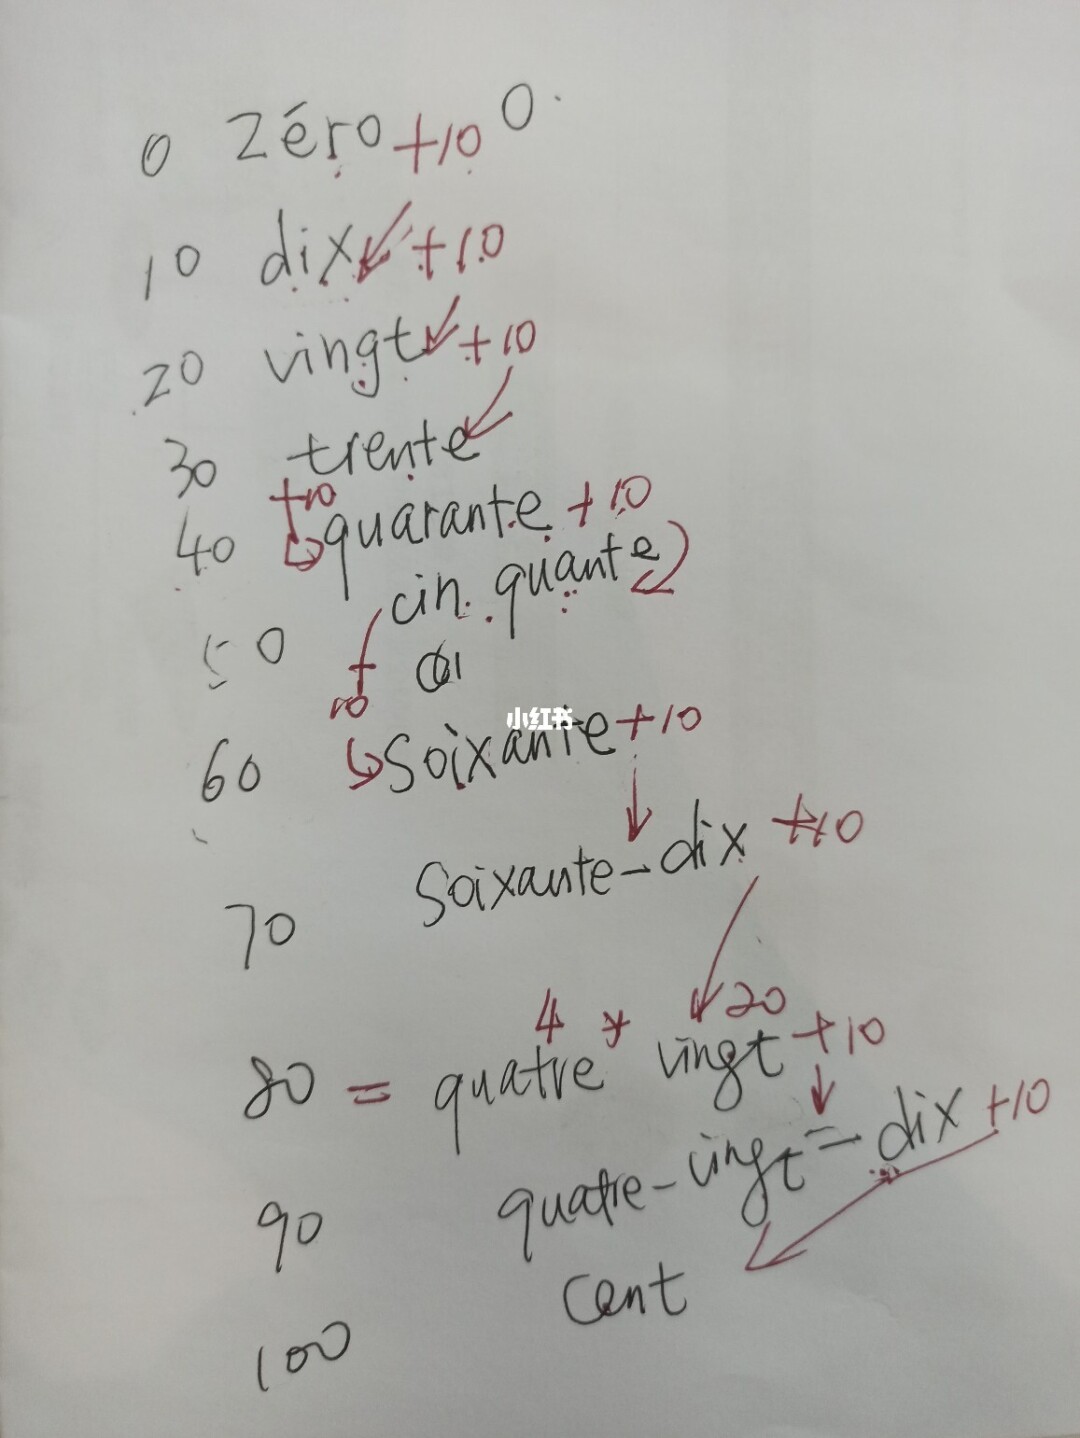 0 zéro +10 0
10 dix +10
20 vingt +10
30 trente
+10
40 quarante +10
cin quante
50 +
10
小红书
60 soixante +10
70 Soixante-dix +10
4 * 20
80 = quatre vingt +10
90 quatre-vingt-dix +10
100 cent